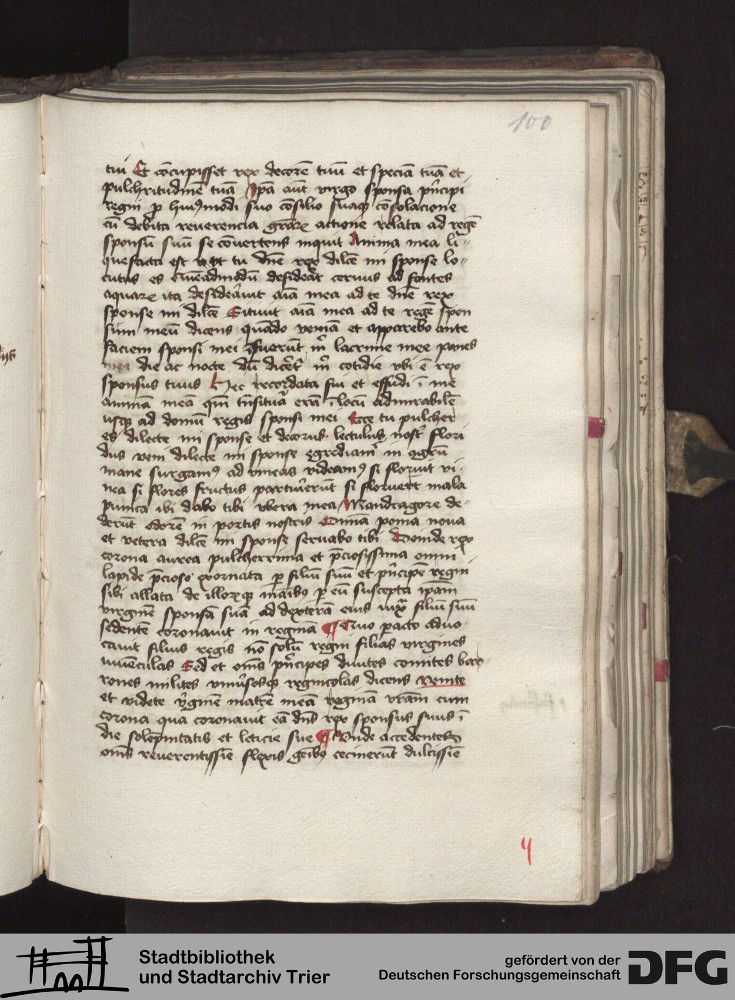 100
tui Et cōcupisset rex decorē tuū et speciā tuā et
pulchritudinē tuā Ipa aūt virgo sponsa pīncipi
regni p huiꝰmodi suo cōsilio suaqꝫ cōsolacione
cū debita reverencia grāꝝ actione relata ad regē
sponsū suū se cōvertens inquit Anima mea li-
quefacta est ut tu dn̄e rex dilc̄e mi sponse lo-
cutus es Quēadmodū desiderat cervus ad fontes
aquaꝝ ita desiderāvit aīa mea ad te dn̄e rex
sponse mi dilc̄e Sitivit aīa mea ad te regē spon
sum meū dicens quādo veniā et apparebo ante
faciem sponsi mei Fuerūt m̄ lacrime mee panes
die ac nocte dū dicet̄ m̄ cotidie vbi ē rex
sponsus tuus Hec recordata sui et effudi ī me
animā meā qm̄ trāsitura erā ī locū admirabilē
usqꝫ ad domū regis sponsi mei Ecce tu pulcher
es dilecte mi sponse et decorus lectulus nost̄ flori
dus veni dilecte mi sponse egrediam̄ in agrū
mane surgamꝰ ad vineas videamꝰ si floruit vi-
nea si flores fructus parturierūt si floruert̄ mala
punica ibi dabo tibi vbera mea Mandragore de-
derūt odorē in portis nostris Omnia poma nova
et vetera dilc̄e mi sponse servabo tibi Deinde rex
corona aurea pulcherrima et p̄ciosissima omni
lapide p̄cioso exornata p filiū suū et pīncipē regni
sibi allata de illoꝝqꝫ manibꝰ p eū suscepta ipam
virginē sponsā suā ad dexterā eius iux̄ filiū suū
sedentē coronavit in reginā ¶ Quo pacto advo-
cavit filius regis nō solū regni filias virgines
iuvēculas Sed et om̄s pīncipes divites comites bar-
rones milites vniūsosqꝫ regnicolas dicens Venite
et videte v̄ginē matrē meā reginā vr̄am cum
corona qua coronavit eā dn̄s rex sponsus suus ī
die solepnitatis et leticie sue ¶ Unde accedentes
om̄s reverentissīe flexis genibꝰ cecinerūt dulcissīe
Stadtbibliothek
und Stadtarchiv Trier
gefördert von der
Deutschen Forschungsgemeinschaft
DFG